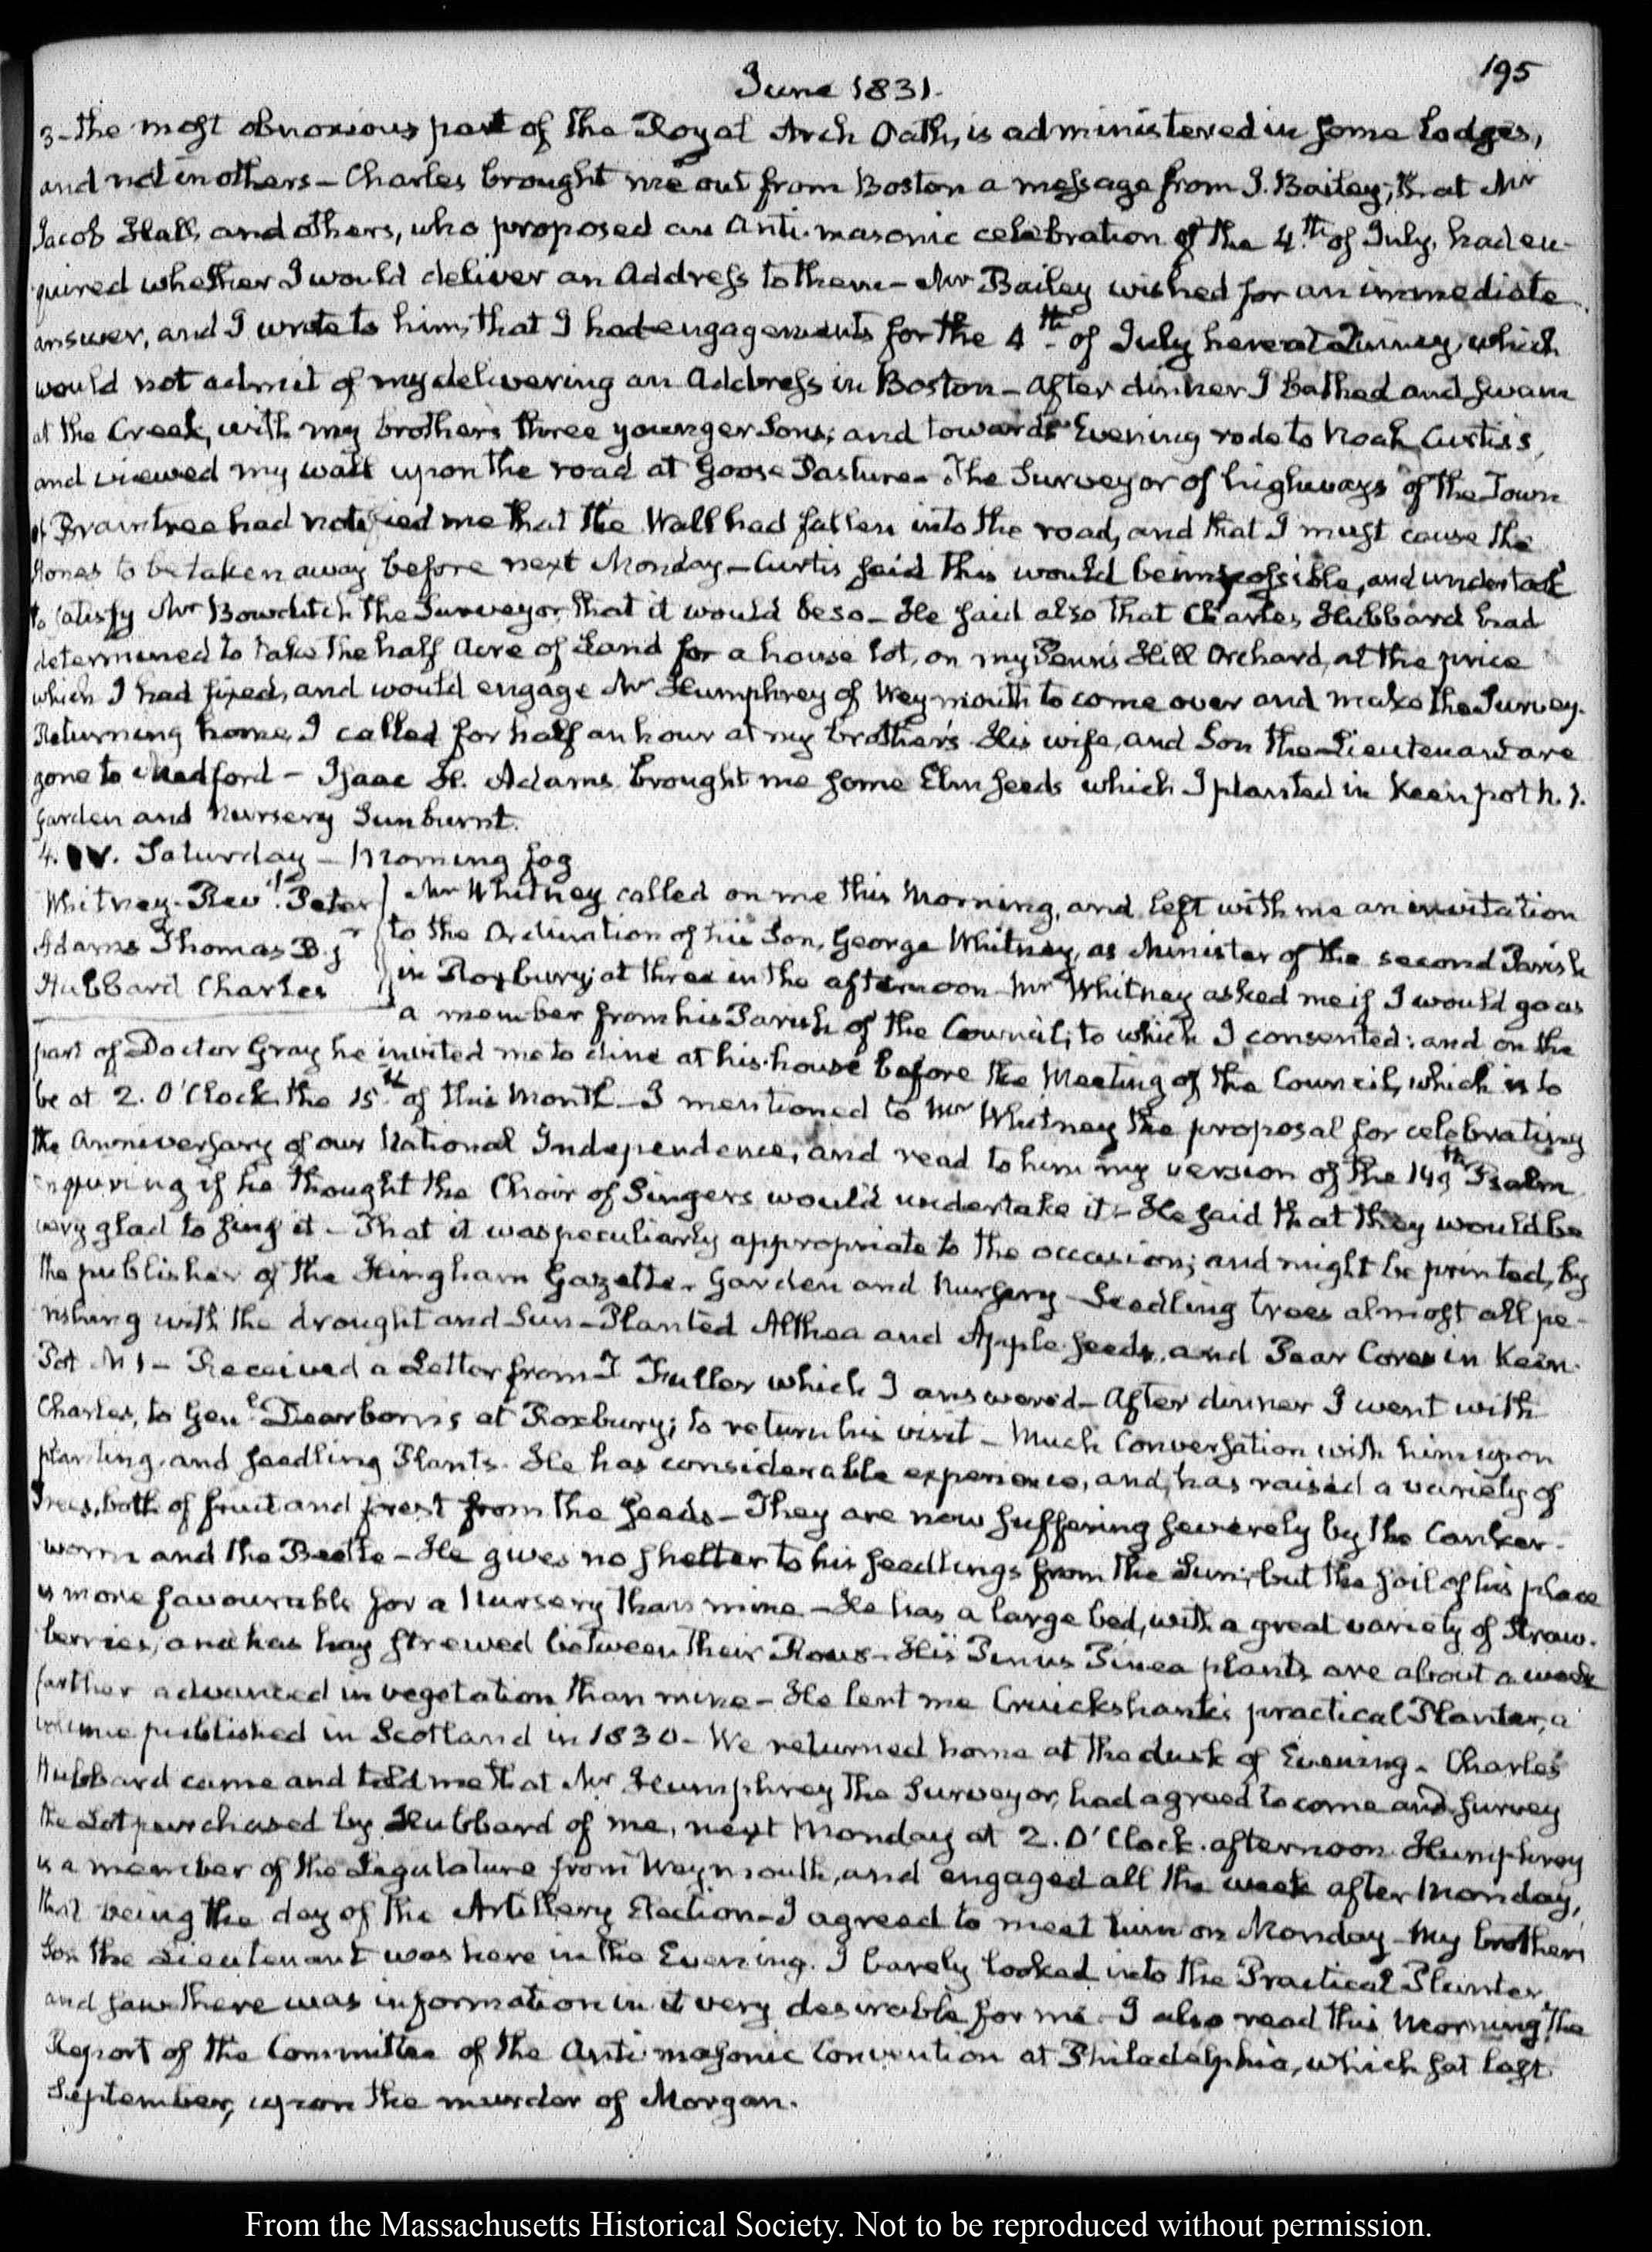 195
June 1831.
3 - the most obnoxious part of the Royal Arch Oath, is administered in some Lodges,
and not in others - Charles brought me out from Boston a message from J. Bailey, that Mr
Jacob Hall, and others, who proposed an Anti-masonic celebration of the 4th. of July, had en-
quired whether I would deliver an Address to them - Mr Bailey wished for an immediate
answer, and I wrote to him, that I had engagements for the 4th. of July here at Quincy, which
would not admit of my delivering an Address in Boston - After dinner I bathed and swam
at the Creek, with my brother's three younger Sons; and towards Evening rode to Noah Curtis's,
and viewed my wall upon the road at Goose Pasture - The Surveyor of highways of the Town
of Braintree had notified me that the Wall had fallen into the road, and that I must cause the
Stones to be taken away before next Monday - Curtis said this would be impossible, and undertook
to satisfy Mr Bowditch the Surveyor, that it would be so - He said also that Charles Hubbard had
determined to take the half Acre of Land for a house lot, on my Penn's Hill Orchard, at the price
which I had fixed, and would engage Mr Humphrey of Weymouth to come over and make the Survey.
Returning home, I called for half an hour at my brother's His wife, and Son the Lieutenant are
gone to Medford - Isaac H. Adams brought me some Elm seeds which I planted in Keen pot N. 1.
Garden and Nursery Sunburnt.
4. IV. Saturday - Morning fog
Whitney - Revd. Peter
Adams Thomas B. jr
Hubbard Charles
Mr Whitney called on me this Morning, and left with me an invitation
to the Ordination of his Son, George Whitney, as Minister of the second Parish
in Roxbury; at three in the afternoon - Mr Whitney asked me if I would go as
a member from his Parish of the Council; to which I consented: and on the
part of Doctor Gray he invited me to dine at his house before the Meeting of the Council, which is to
be at 2. O'Clock the 15th. of this Month - I mentioned to Mr Whitney the proposal for celebrating
the Anniversary of our National Independence, and read to him my version of the 149th Psalm
inquiring if he thought the Choir of Singers would undertake it - He said that they would be
very glad to sing it - That it was peculiarly appropriate to the occasion; and might be printed, by
the publisher of the Hingham Gazette - Garden and Nursery - Seedling trees almost all pe-
rishing with the drought and Sun - Planted Althea and Apple seeds, and Pear Cores in Keen
Pot N 1 - Received a Letter from T Fuller which I answered - After dinner I went with
Charles, to Genl. Dearborn's at Roxbury; to return his visit - Much Conversation with him upon
planting, and seedling Plants. He has considerable experience, and, has raised a variety of
Trees, both of fruit and forest from the seeds - They are now suffering severely by the Canker-
worm and the Beetle - He gives no shelter to his seedlings from the Sun; but the soil of his place
is more favourable for a Nursery than mine - He has a large bed, with a great variety of Straw-
berries, and has hay strewed between their Rows - His Pinus Pinea plants are about a week
farther advanced in vegetation than mine - He lent me Cruickshank's practical Planter, a
volume published in Scotland in 1830 - We returned home at the dusk of Evening - Charles
Hubbard came and told me that Mr Humphrey the Surveyor, had agreed to come and survey
the Lot purchased by Hubbard of me, next Monday at 2. O'Clock. afternoon. Humphrey
is a member of the Legislature from Weymouth, and engaged all the week after Monday,
that being the day of the Artillery Election - I agreed to meet him on Monday - My brother's
Son the Lieutenant was here in the Evening. I barely looked into the Practical Planter,
and saw there was information in it very desirable for me - I also read this Morning the
Report of the Committee of the Anti-masonic Convention at Philadelphia, which sat last
September, upon the murder of Morgan.
From the Massachusetts Historical Society. Not to be reproduced without permission.